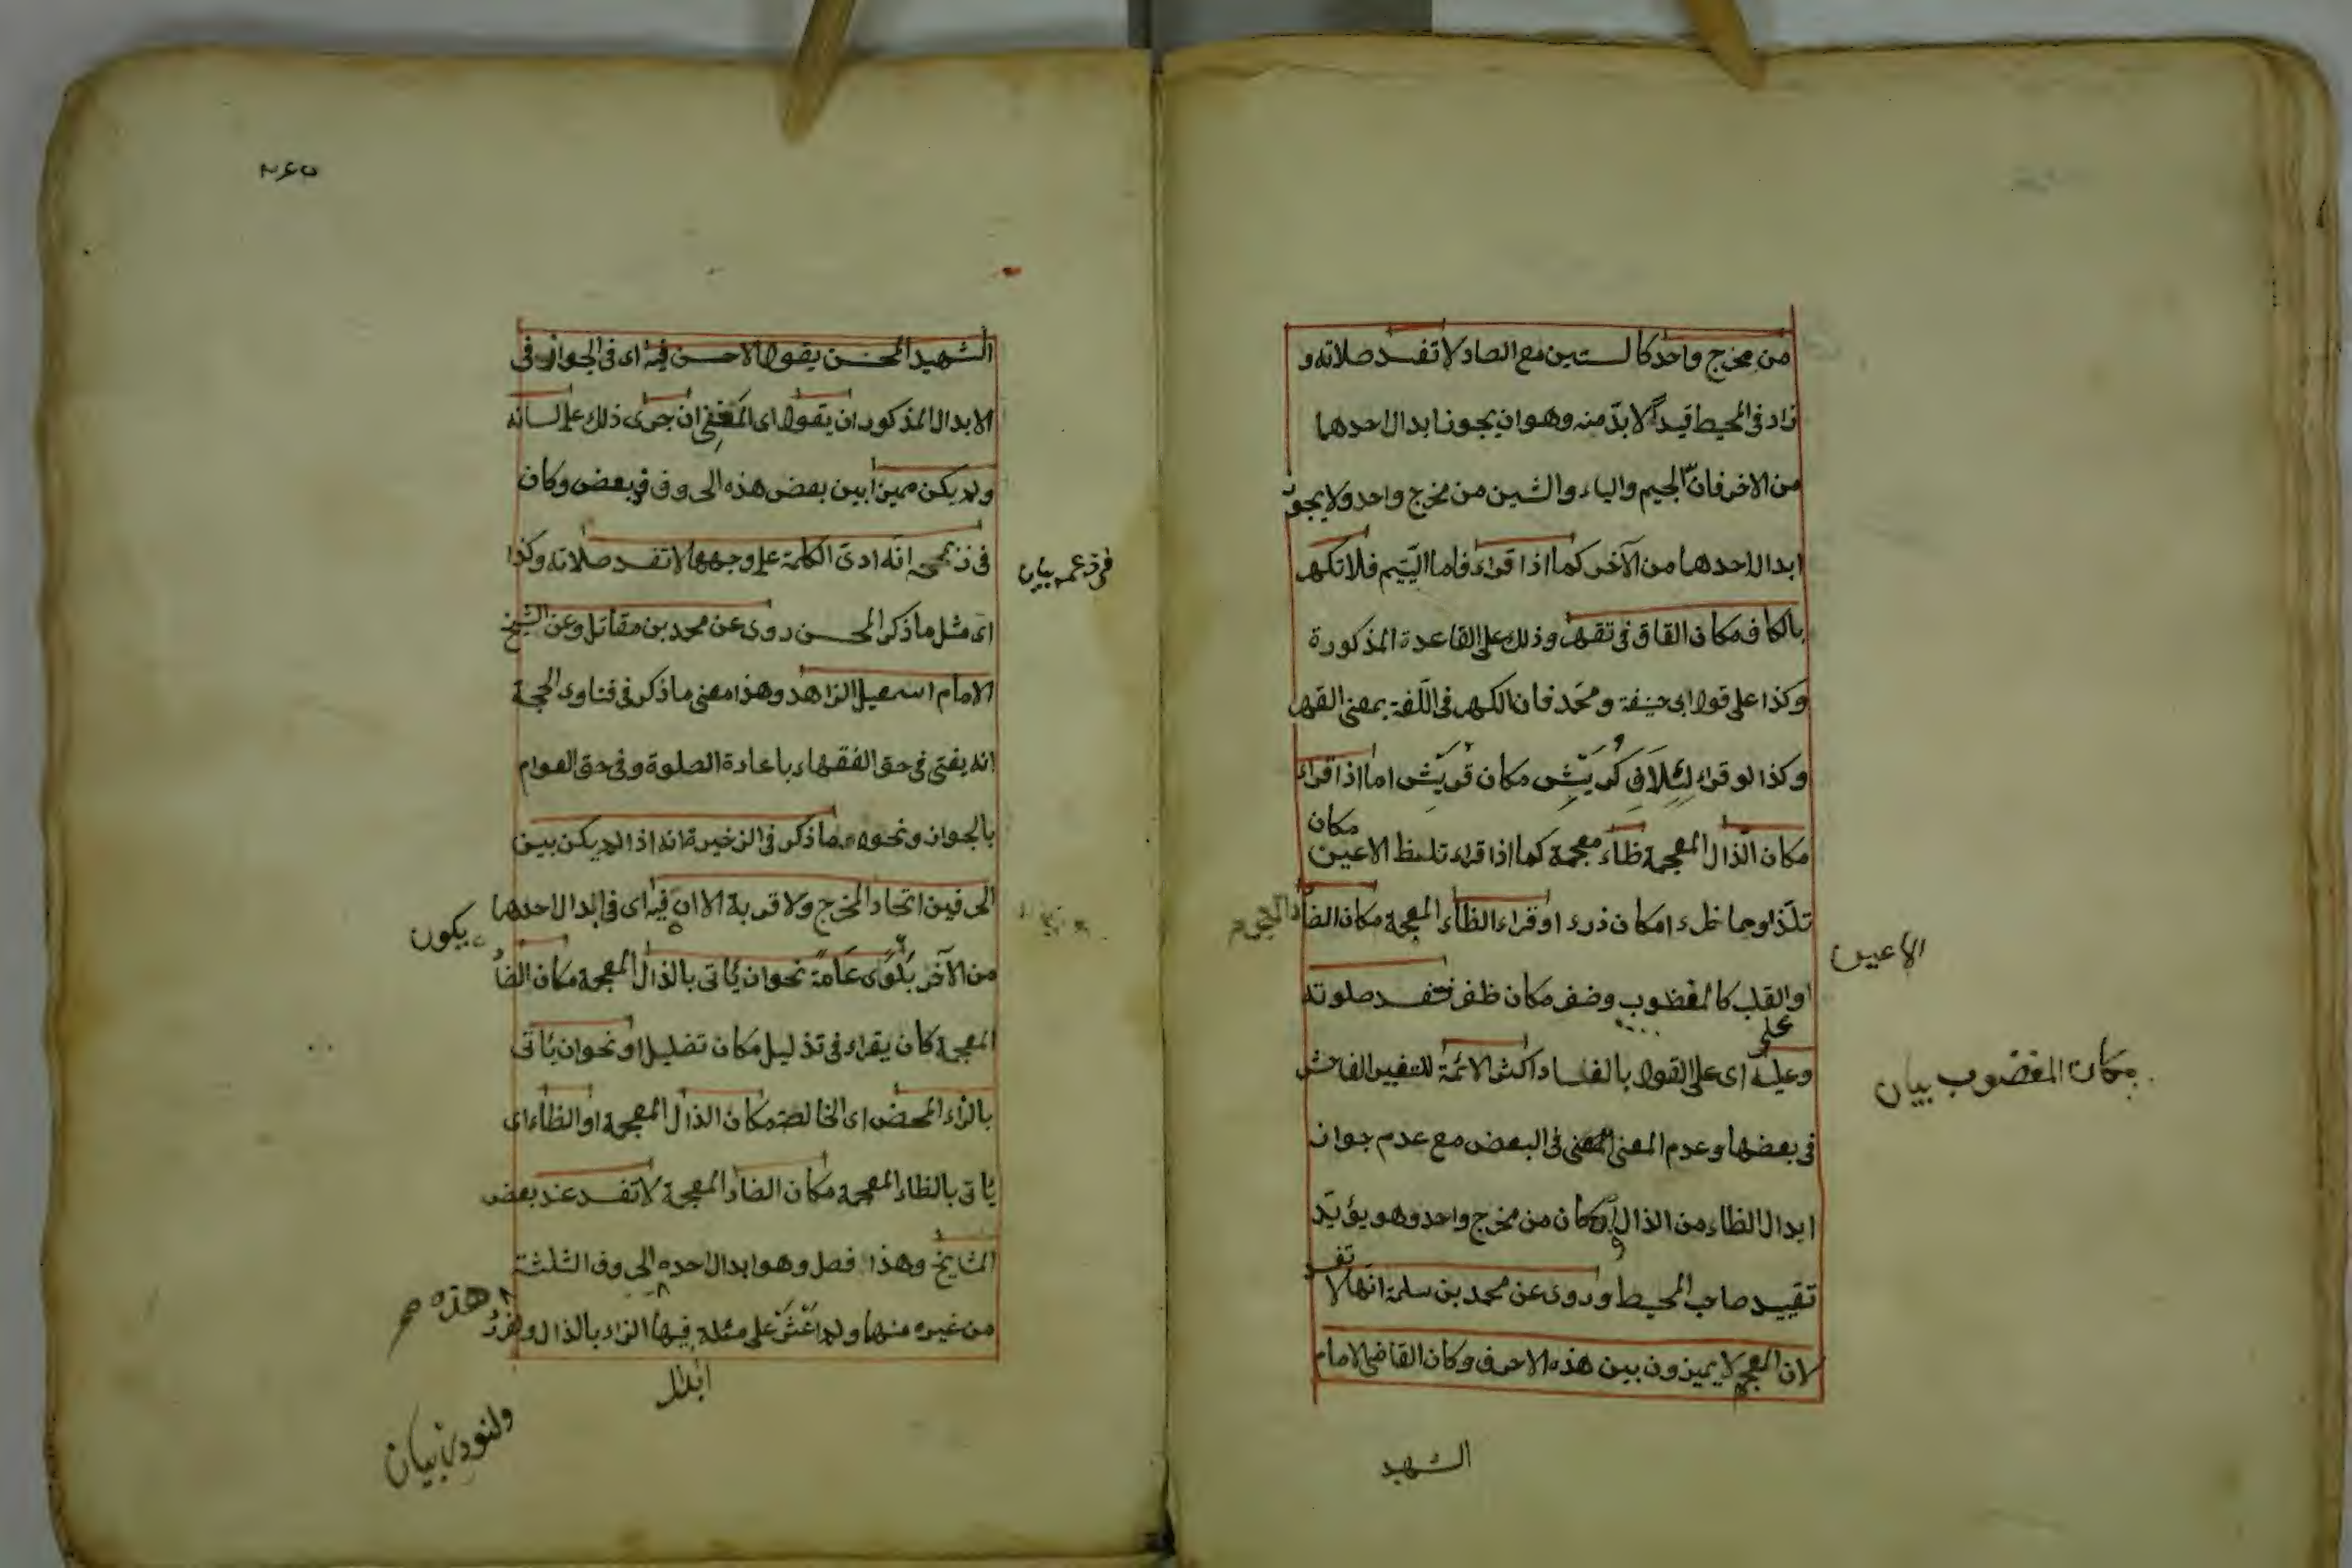 من مخرج واحد كالستين مع الصاد لا تفسد صلاته و
زاد في المحيط قيداً لا بدّ منه وهو ان يجوز ابدال احدهما
من الاخر فانّ الجيم والياء والشين من مخرج واحد ولا يجوز
ابدال احدهما من الآخر كما اذا قراء فاما اليتيم فلا تكهر
بالكاف مكان القاف في تقهر وذلك على القاعدة المذكورة
وكذا على قول ابي حنيفة ومحمّد فان الكهر في اللّغة بمعنى القهر
وكذا لو قراء لئلاف كريش مكان قريش اما اذا قراء
مكان
مكان الذال المعجمة ظاء معجمة كما اذا قراء تلظ الاعين
تلذ او مما ظرء مكان ذرء او قراء الظاء المعجمة مكان الضاد المعجمة
الاعين
او القلب كالمغظوب وضفر مكان ظفر فتفسد صلوته
مكان المغضوب بيان
على
وعليه اى على القول بالفساد اكثر الائمة للتغيير الفاحش
في بعضها وعدم المعنى في البعض مع عدم جواز
ابدال الظاء من الذال وان كان من مخرج واحد وهو يؤيّد
تقييد صاحب المحيط وروى عن محمد بن سلمة انّها لا
تفسد
لان العجم لا يميزون بين هذه الاحرف وكان القاضى الامام
الشهيد
٢٤٥
الشهيد المحسن يقول الاحسن فيه اى في الجواز في
الابدال المذكور ان يقول اى المفتى ان جرى ذلك على لسانه
ولم يكن مميزا بين بعض هذه الحروف وبعض وكان
في زعمه انّه ادى الكلمة على وجهها لا تفسد صلاته وكذا
في زعمه بيان
اى مثل ما ذكر المحسن روى عن محمد بن مقاتل وعن الشيخ
الامام اسمعيل الزاهد وهذا معنى ما ذكر في فتاوى الحجة
انه يفتى في حق الفقهاء باعادة الصلوة وفي حق العوام
بالجواز ونحوه ما ذكر في الذخيرة انه اذا لم يكن بين
الحرفين اتحاد المخرج ولا قربة الا ان فيه اى في ابدال احدهما
يكون
من الآخر بلوى عامة نحو ان يأتى بالذال المعجمة مكان الضاد
المعجمة كان يقراء في تذليل مكان تضليل او نحو ان يأتى
بالزاء المحض اى الخالصة مكان الذال المعجمة او الظاء اى
يأتى بالظاء المعجمة مكان الضاد المعجمة لا تفسد عند بعض
المشايخ وهذا فصل وهو ابدال احد الحروف الثلثة
هذه صح
من غيره منها ولم اعثر على مسئلة فيها الزاء بالذال
ابدال
بيان